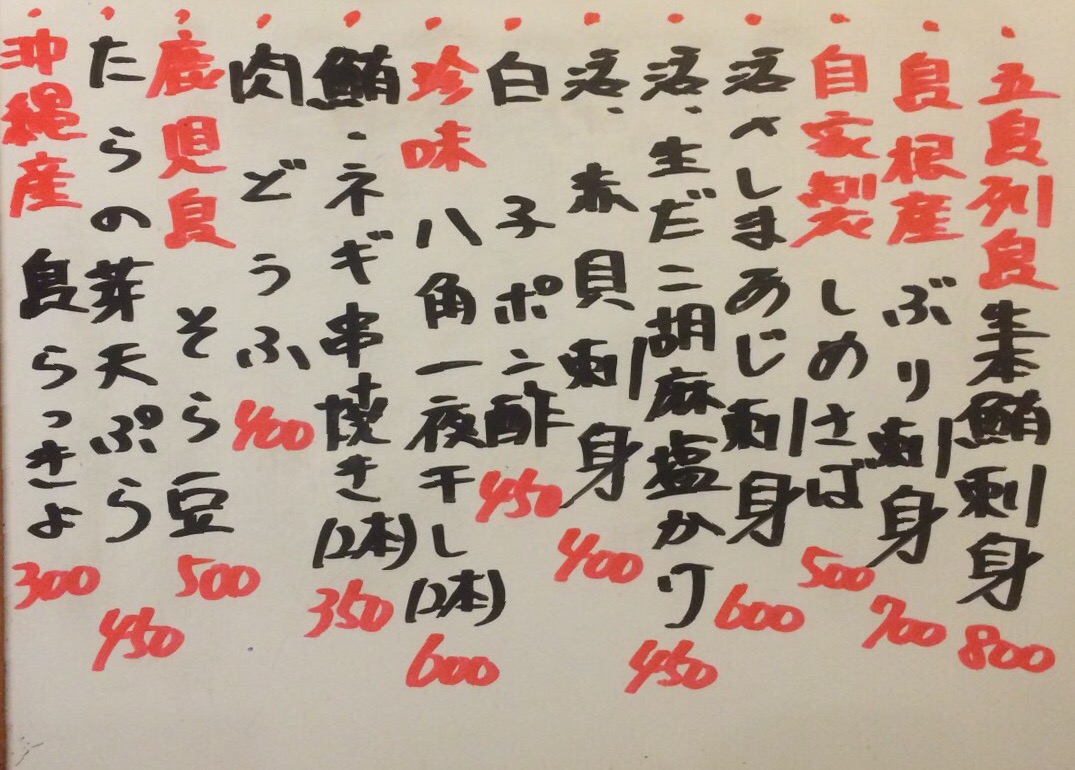 ・五島列島 生本鮪刺身 800
・島根産 ぶり刺身 700
・自家製 しめさば 500
・活〆しまあじ刺身 600
・活、生だこ胡麻塩かけ 450
・活、赤貝刺身 400
・白子ポン酢 450
・珍味 八角一夜干し(2本) 600
・鮪・ネギ串焼き(2本) 350
・肉どうふ 400
・鹿児島 そら豆 500
・たらの芽天ぷら 450
・沖縄産 島らっきょ 300